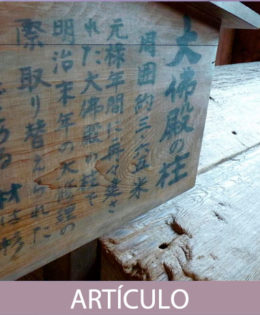 大佛殿の柱
周囲約三・六五米
元祿年間に再建さ
れた大佛殿の柱で
明治末年の大修理の
際取り替えられた
ARTÍCULO